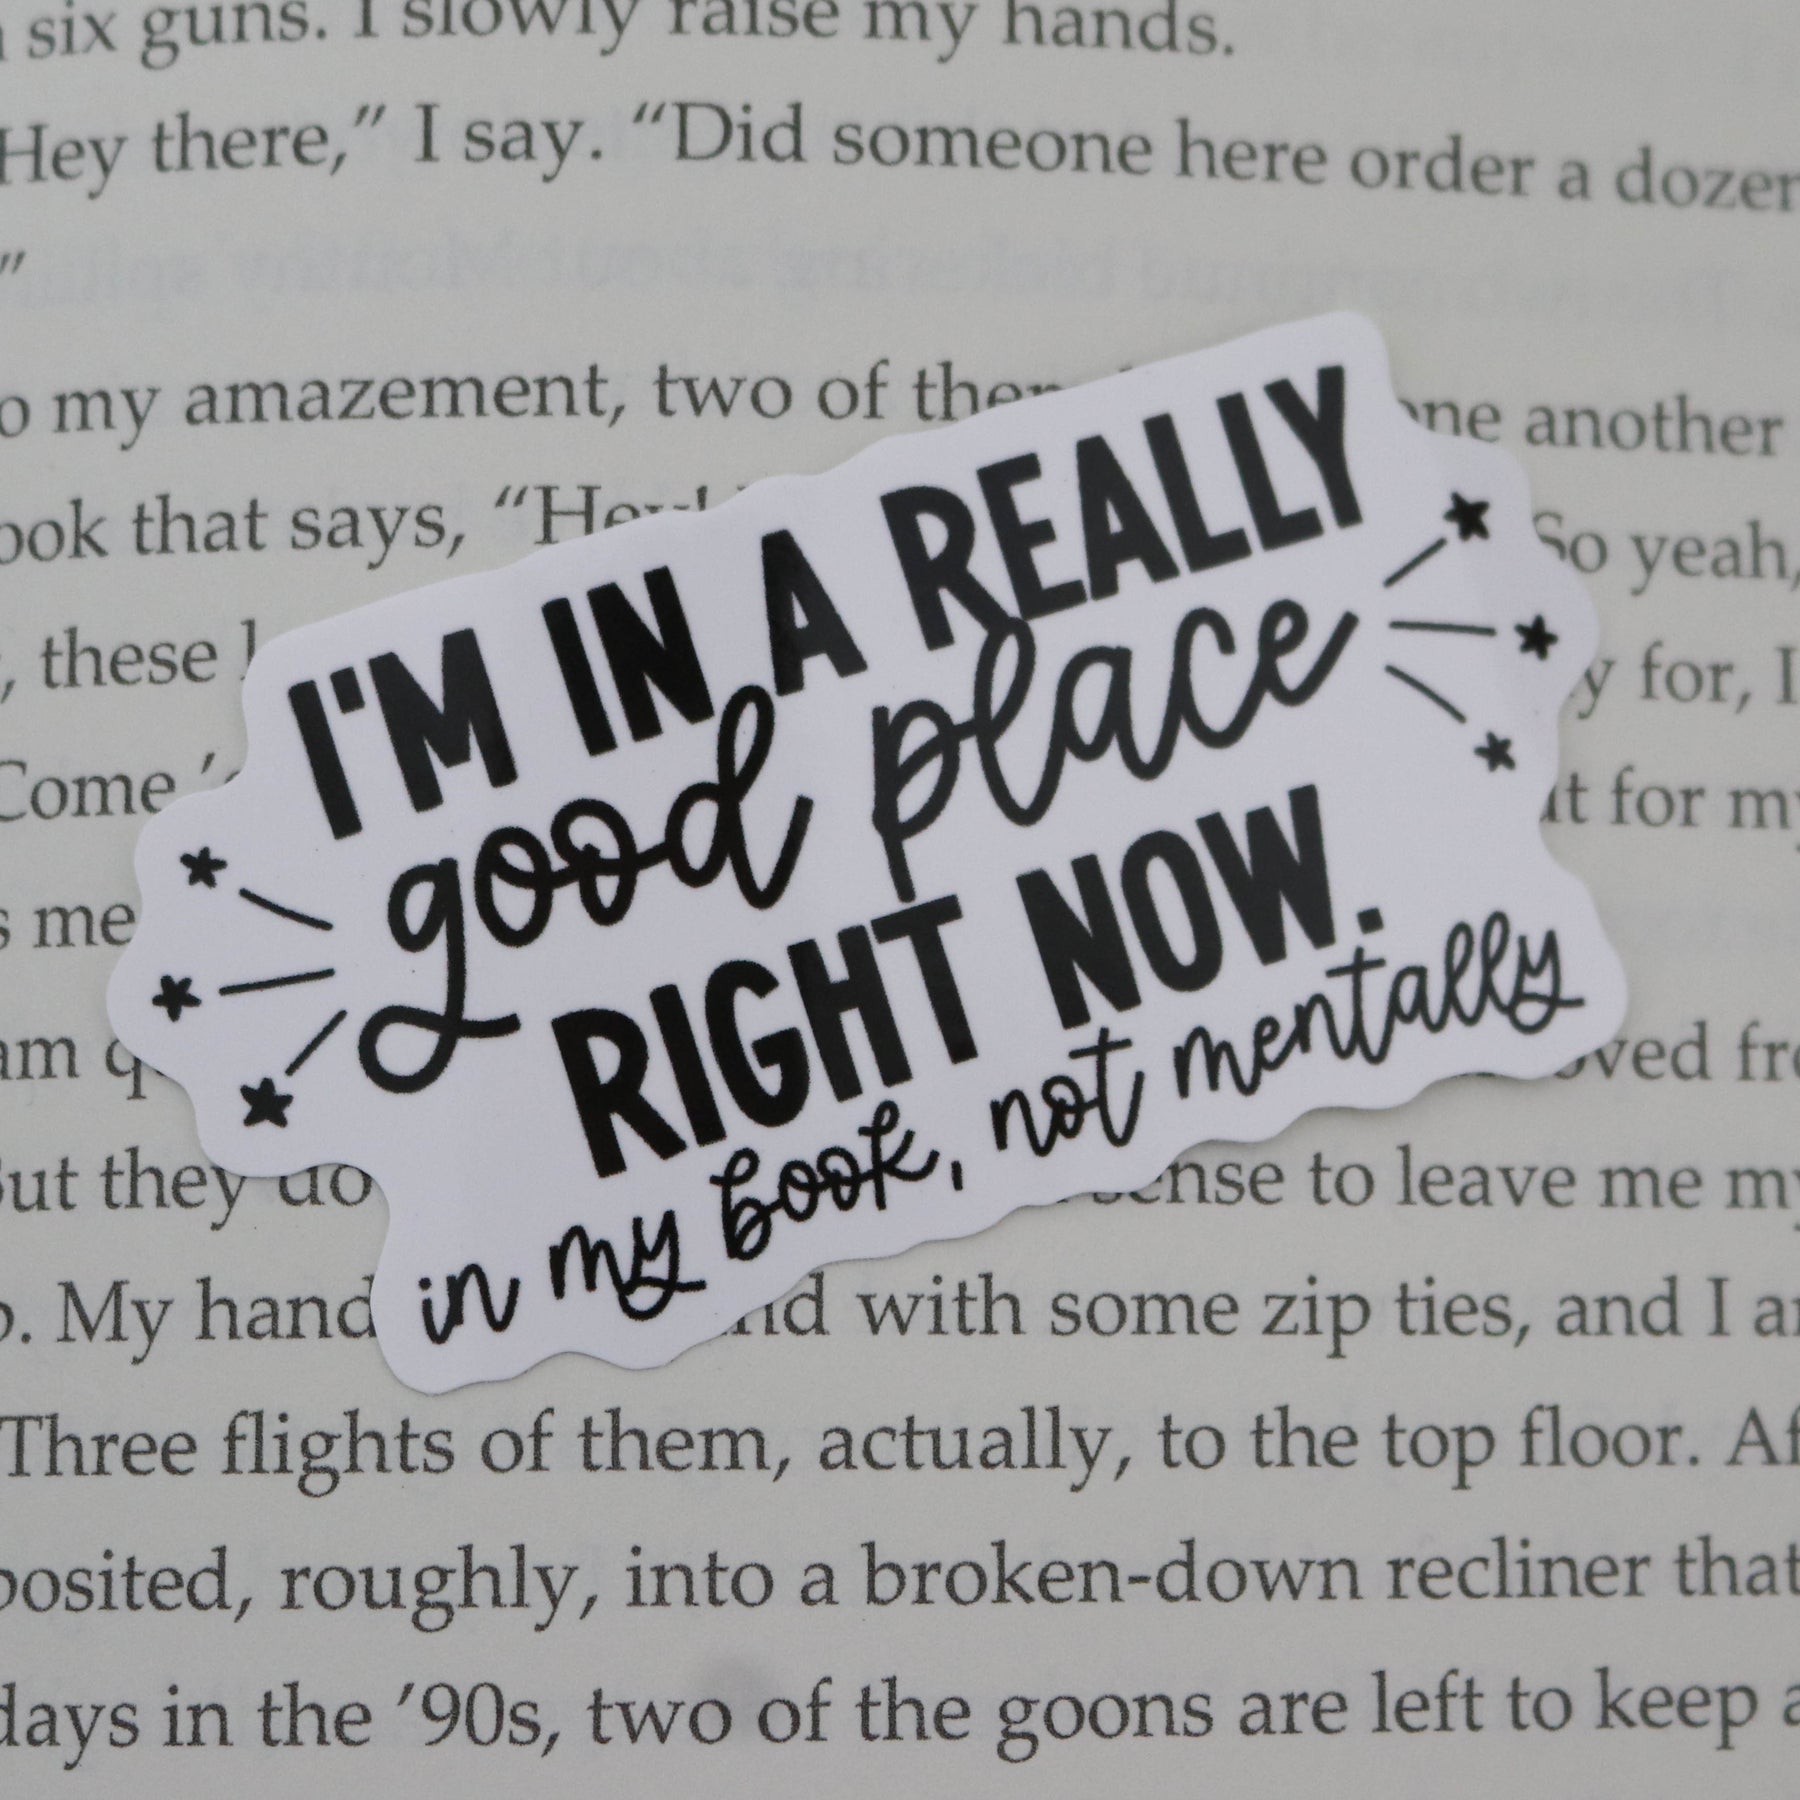 six guns. I slowly raise my hands.
Hey there,” I say. “Did someone here order a dozen
”
my amazement, two of one another
that says, “Hey! So yeah,
, these for, I
Come for my
me
am
I'M IN A REALLY
good place
RIGHT NOW.
in my book, not mentally
But they do sense to leave me my
. My hand with some zip ties, and I
Three flights of them, actually, to the top floor.
roughly, into a broken-down recliner that
days in the ’90s, two of the goons are left to keep